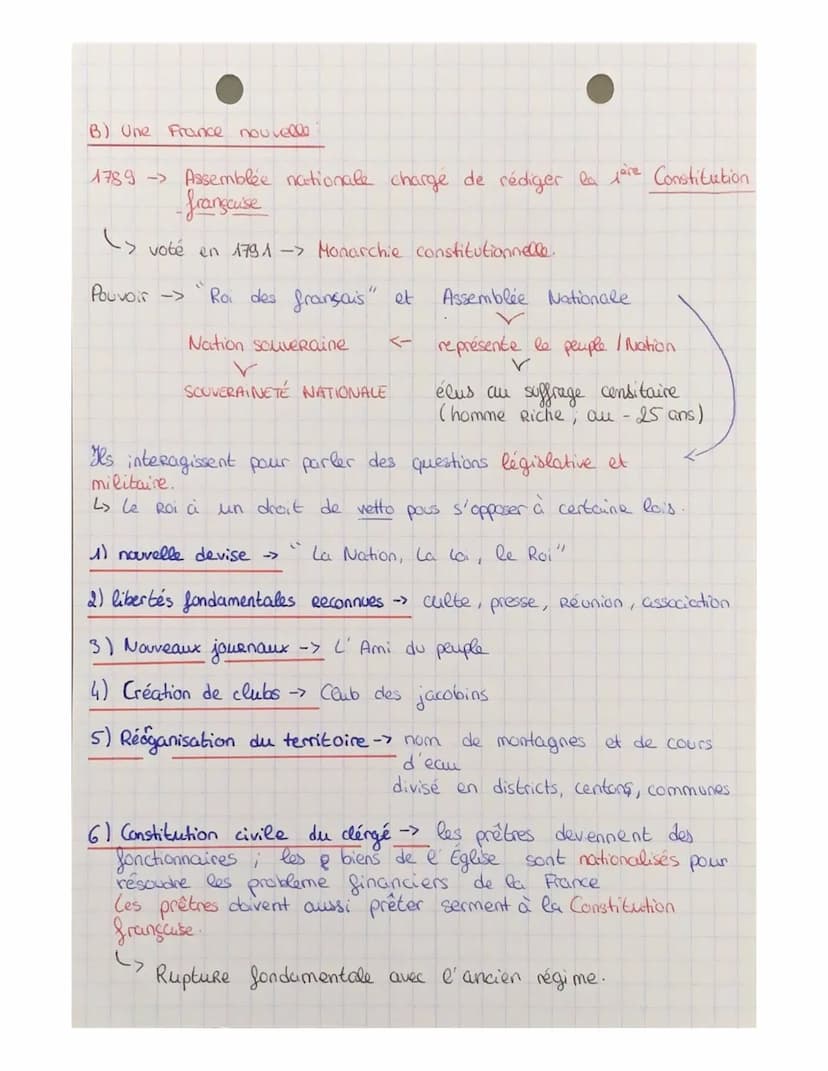 B) Une France nouvelle :
1789 -> Assemblée nationale chargé de rédiger la 1ère Constitution
française
↳ voté en 1791 -> Monarchie constitutionnelle.
Pouvoir -> "Roi des français" et Assemblée Nationale
Nation souveraine <- représente le peuple / Nation
SOUVERAINETÉ NATIONALE élus au suffrage censitaire
(homme Riche ; au - 25 ans)
Ils interagissent pour parler des questions législative et
militaire.
↳ Le Roi à un droit de vetto pous s'opposer à certaine lois.
1) nouvelle devise -> "La Nation, La Loi, le Roi"
2) libertés fondamentales reconnues -> culte, presse, Réunion, association
3) Nouveaux journaux -> L'Ami du peuple
4) Création de clubs -> Club des jacobins
5) Réorganisation du territoire -> nom de montagnes et de cours
d'eau
divisé en districts, centons, communes
6) Constitution civile du clérgé -> les prêtres devennent des
fonctionnaires ; les biens de l'Église sont nationalisés pour
résoudre les probleme financiers de la France
Les prêtres doivent aussi prêter serment à la Constitution
française.
↳ Rupture fondamentale avec l'ancien régime.